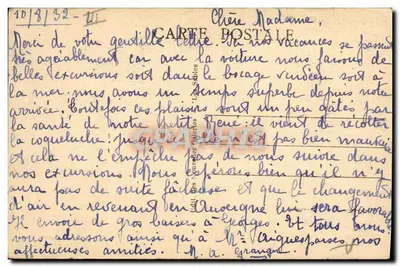 10/8/32 - III
CARTE POSTALE
Chère Madame,
Merci de votre gentille lettre. nos vacances se passent
très agréablement car avec la voiture nous faisons de
belles excursions soit dans le bocage vendéen soit à
la mer. nous avons un temps superbe depuis notre
arrivée. Toutefois ces plaisirs sont un peu gâtés par
la santé de notre petit René: il vient de récolter
la coqueluche; pas bien mauvaise
et cela ne l'empêche pas de nous suivre dans
nos excursions. Nous espérons bien qu'il n'y
aura pas de suite fâcheuse et que le changement
d'air en revenant en Auvergne lui sera favorable
Il envoie de gros baisers à Georges. Et tous
vous adressons ainsi qu'à Mr Aigueparses nos
affectueuses amitiés. M. A. Granger